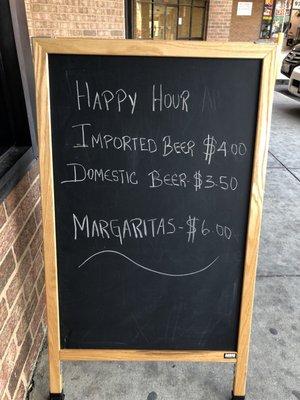 Happy Hour
Imported Beer $4.00
Domestic Beer - $3.50
Margaritas - $6.00